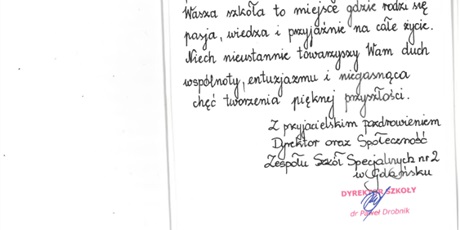 Wasza szkoła to miejsce gdzie rodzi się
pasja, wiedza i przyjaźnie na całe życie.
Niech nieustannie towarzyszy Wam duch
wspólnoty, entuzjazmu i niegasnąca
chęć tworzenia pięknej przyszłości.
Z przyjacielskim pozdrowieniem
Dyrektor oraz Społeczność
Zespołu Szkół Specjalnych nr 2
w Gdańsku
DYREKTOR SZKOŁY
dr Paweł Drobnik